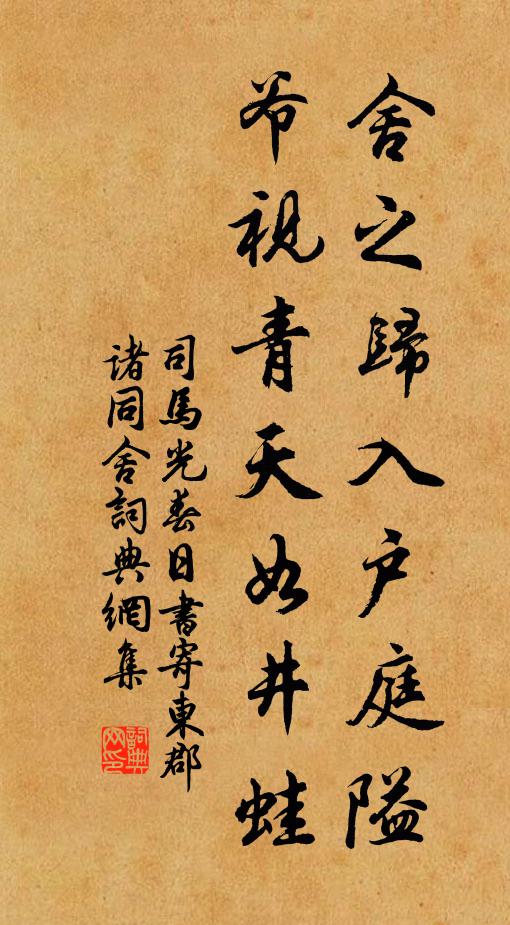 舍之歸入户庭隘
爷視青天如井蛙
司馬光春日書寄東郡
諸同舍詞典網集
詞典网印